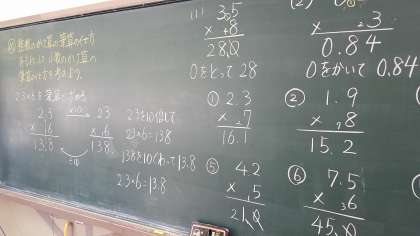 整数のかけ算の筆算の仕方
をもとに、小数のかけ算の
筆算の仕方を考えよう。
2.3×6を筆算でする
2.3 ×10 23
× 6 × 6
13.8 138
÷10
2.3を10倍して
23×6=138
138を10でわって13.8
2.3×6=13.8
(1) 3.5
× 8
28.0
0をとって 28
(2)
× 3
0.84
0をかいて 0.84
① 2.3
× 7
16.1
② 1.9
× 8
15.2
⑤ 42
× .5
21.0
⑥ 7.5
× 6
45.0